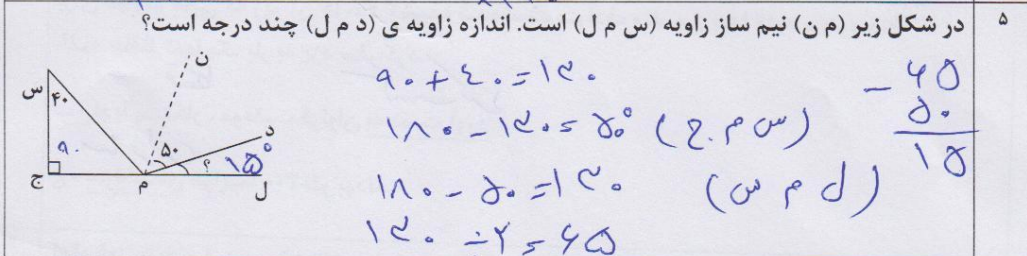 ۵ در شکل زیر (م ن) نیم ساز زاویه (س م ل) است. اندازه زاویه ی (د م ل) چند درجه است؟
ن
س
۴۰
۹۰
ج
م
۵۰
؟
۱۵°
د
ل
۹۰ + ۴۰ = ۱۳۰
۱۸۰ - ۱۳۰ = ۵۰° (س م ج)
۱۸۰ - ۵۰ = ۱۳۰ (ل م س)
۱۳۰ ÷ ۲ = ۶۵
- ۶۵
۵۰
۱۵